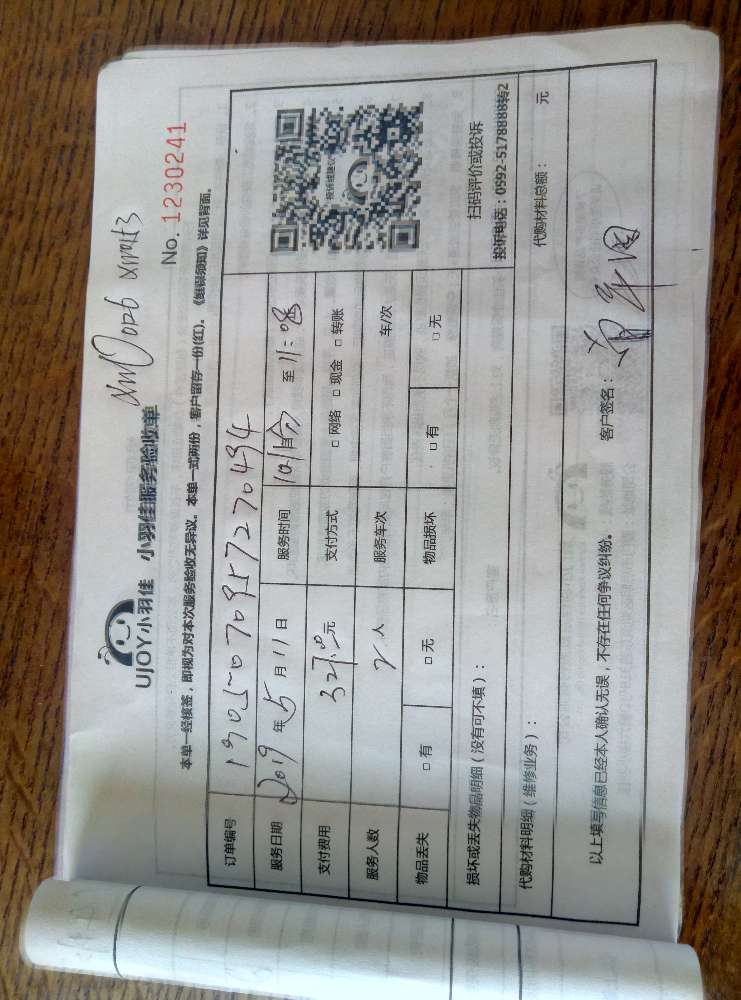 xm0026 xm0113
UJOY小羽佳 小羽佳服务验收单
No. 1230241
本单一经核签，即视为对本次服务验收无异议。本单一式两份，客户留存一份(红)。《维保须知》详见背面。
订单编号 1905070957270494
服务日期 2019 年 5 月 11 日 服务时间 至 11:08
支付费用 元 支付方式 □ 网络 □ 现金 □ 转账
服务人数 2 人 服务车次 车/次
物品丢失 □ 有 □ 无 物品损坏 □ 有 □ 无
扫码评价或投诉
投诉电话：0592-5178888转2
损坏或丢失物品明细（没有可不填）：
代购材料明细（维修业务）： 代购材料总额： 元
以上填写信息已经本人确认无误，不存在任何争议纠纷。 客户签名：